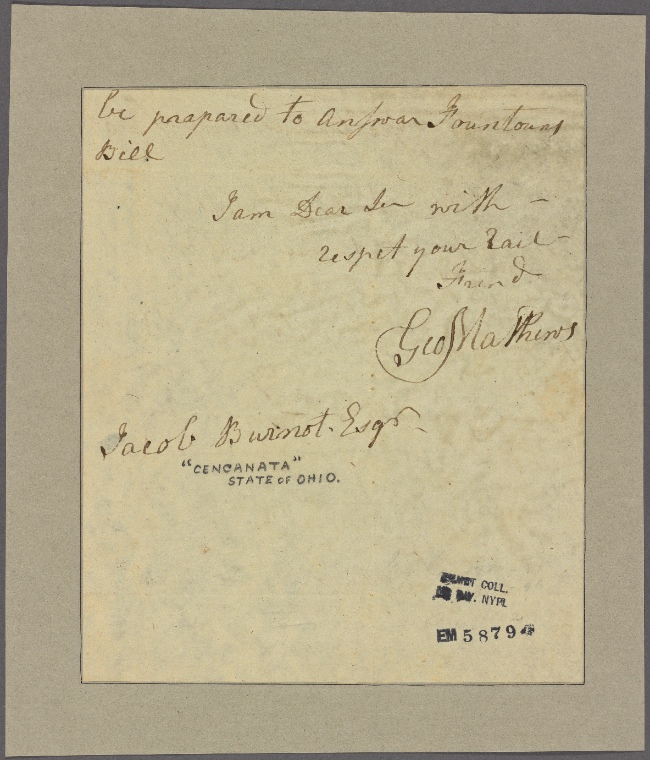 be prapared to Answar Fountains
Bill
I am Dear Sir with -
respet your Reil -
Frind
Geo Mathews
Jacob Burnot. Esqr.
"CENCANATA"
STATE OF OHIO.
COLL.
DIV. NYPL
EM 5879